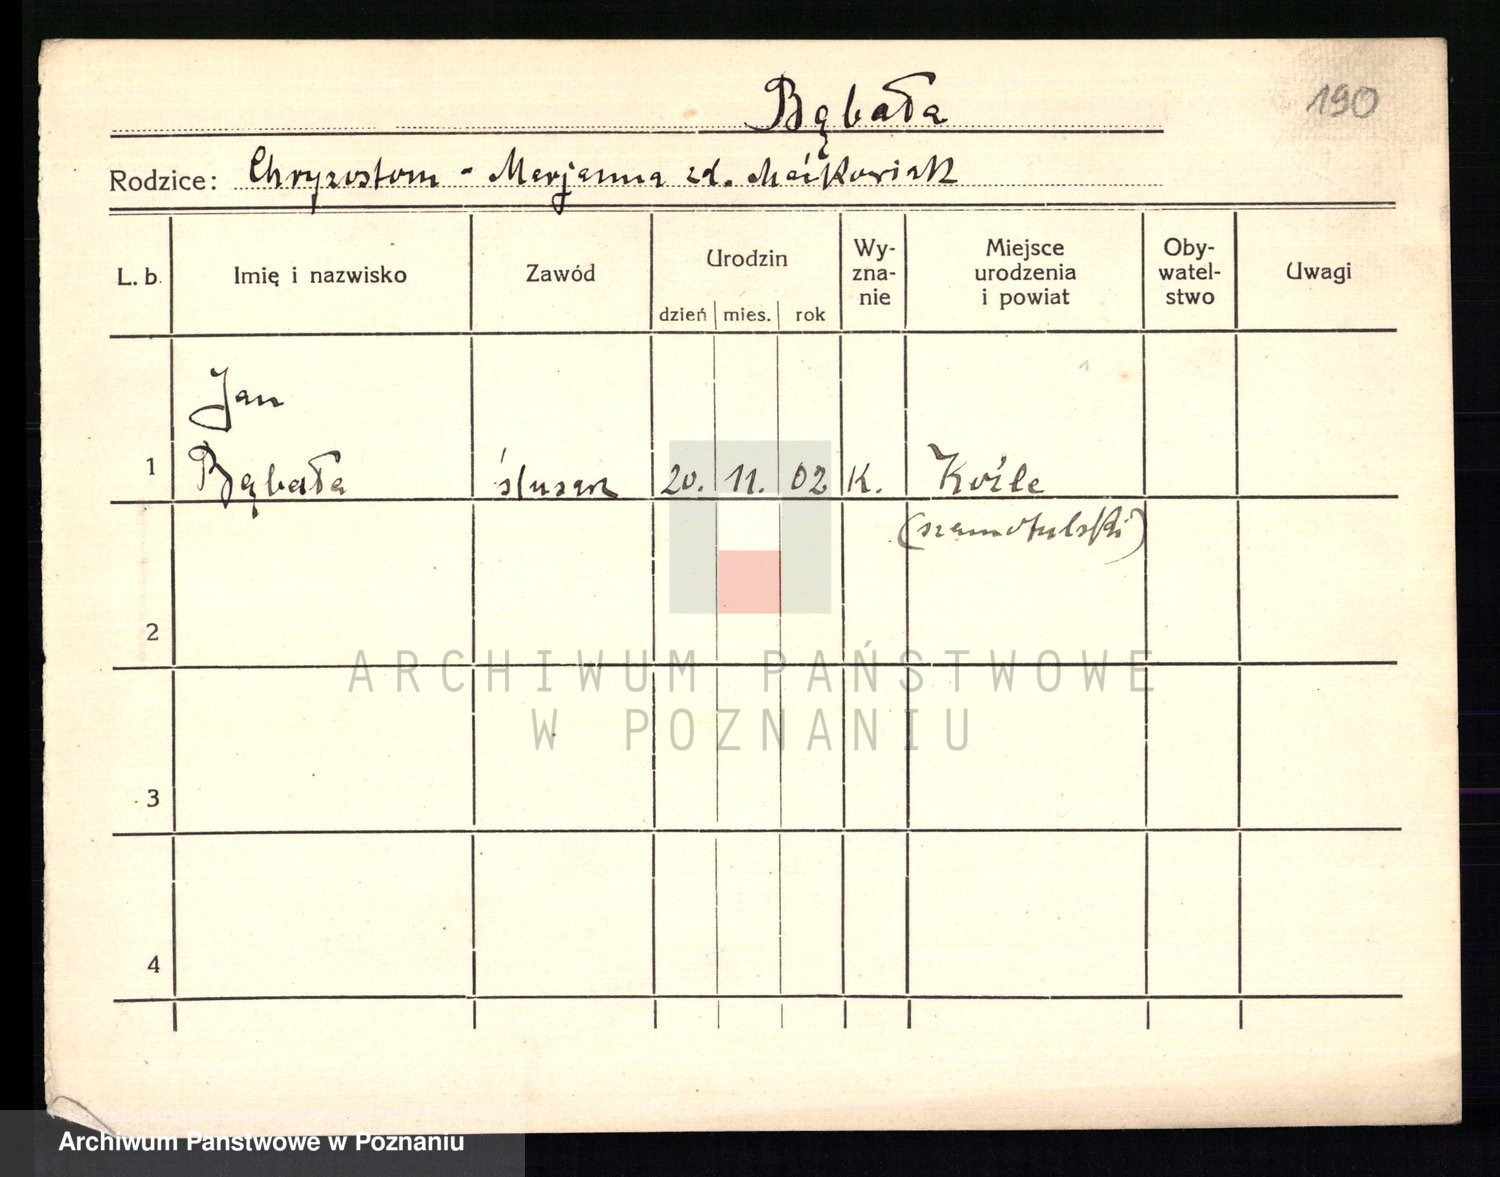 Bąbała
190
Rodzice: Chryzostom - Marjanna zd. Maćkowiak
L. b. Imię i nazwisko Zawód Urodzin dzień mies. rok Wy-zna-nie Miejsce urodzenia i powiat Oby-watel-stwo Uwagi
Jan
1 Bąbała ślusarz 20. 11. 02 K. Koźle
(szamotulski)
2
ARCHIWUM PAŃSTWOWE
W POZNANIU
3
4
Archiwum Państwowe w Poznaniu